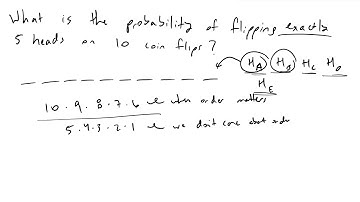 What is the probability of flipping exactly
5 heads on 10 coin flips?
H_A H_B H_C H_D
H_E
10 . 9 . 8 . 7 . 6 ← when order matters
5 . 4 . 3 . 2 . 1 ← we don't care about order